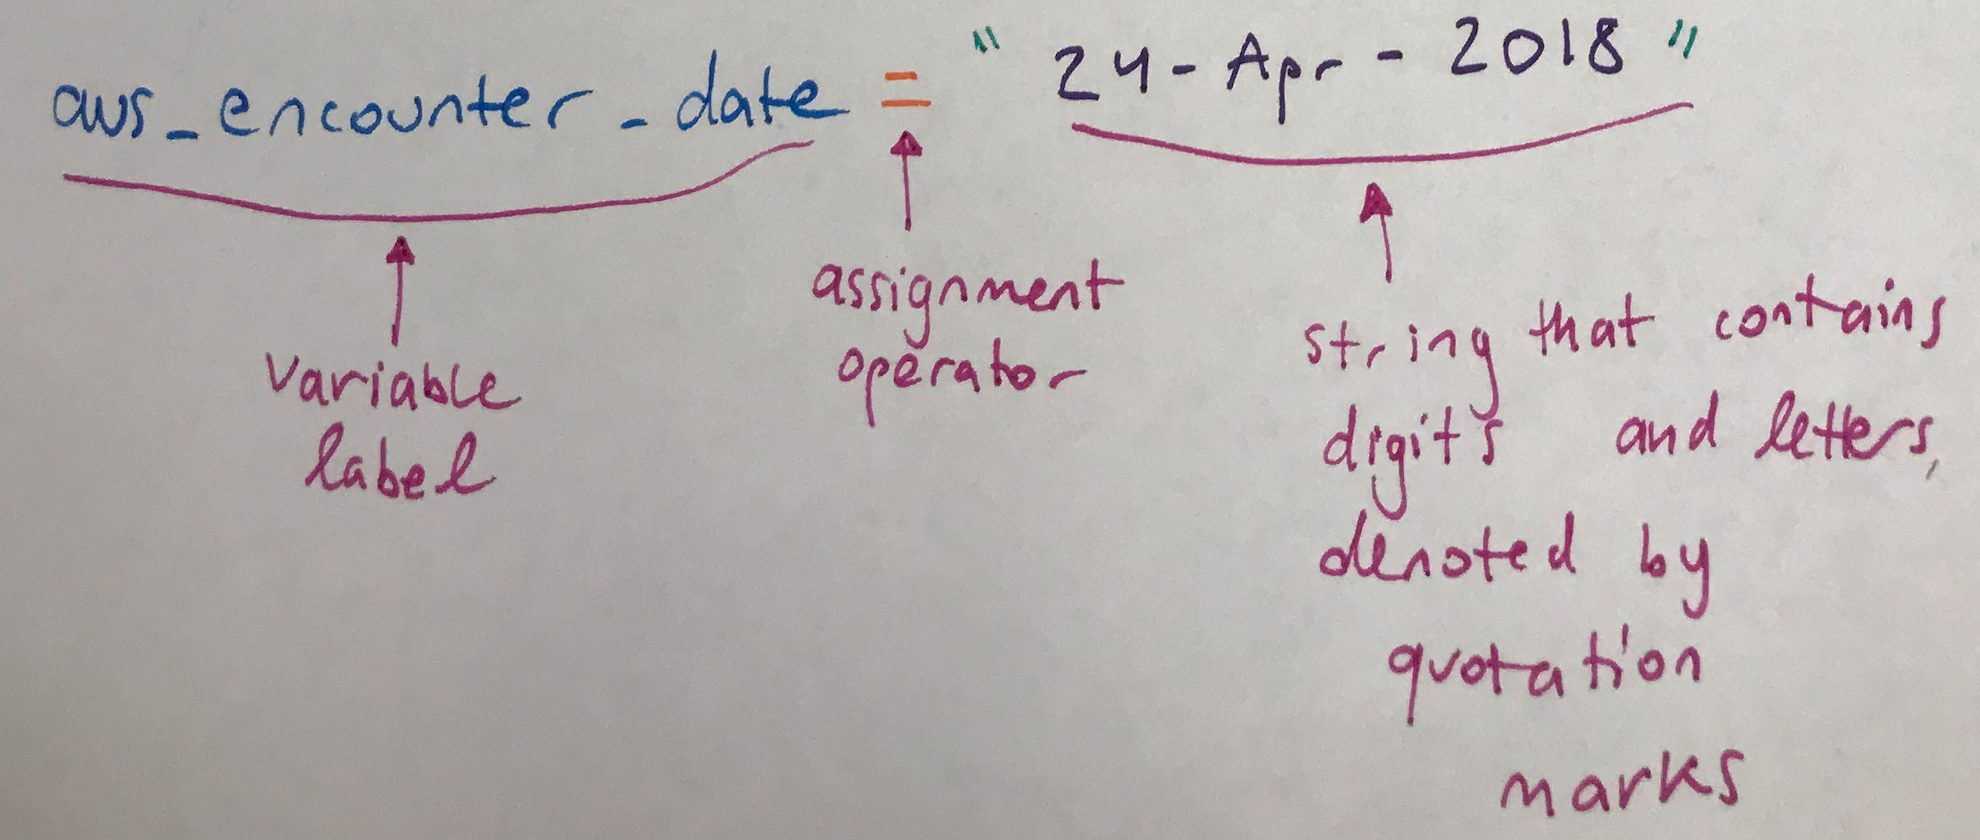 aws_encounter_date = "24-Apr-2018"
variable
label
assignment
operator
string that contains
digits and letters,
denoted by
quotation
marks